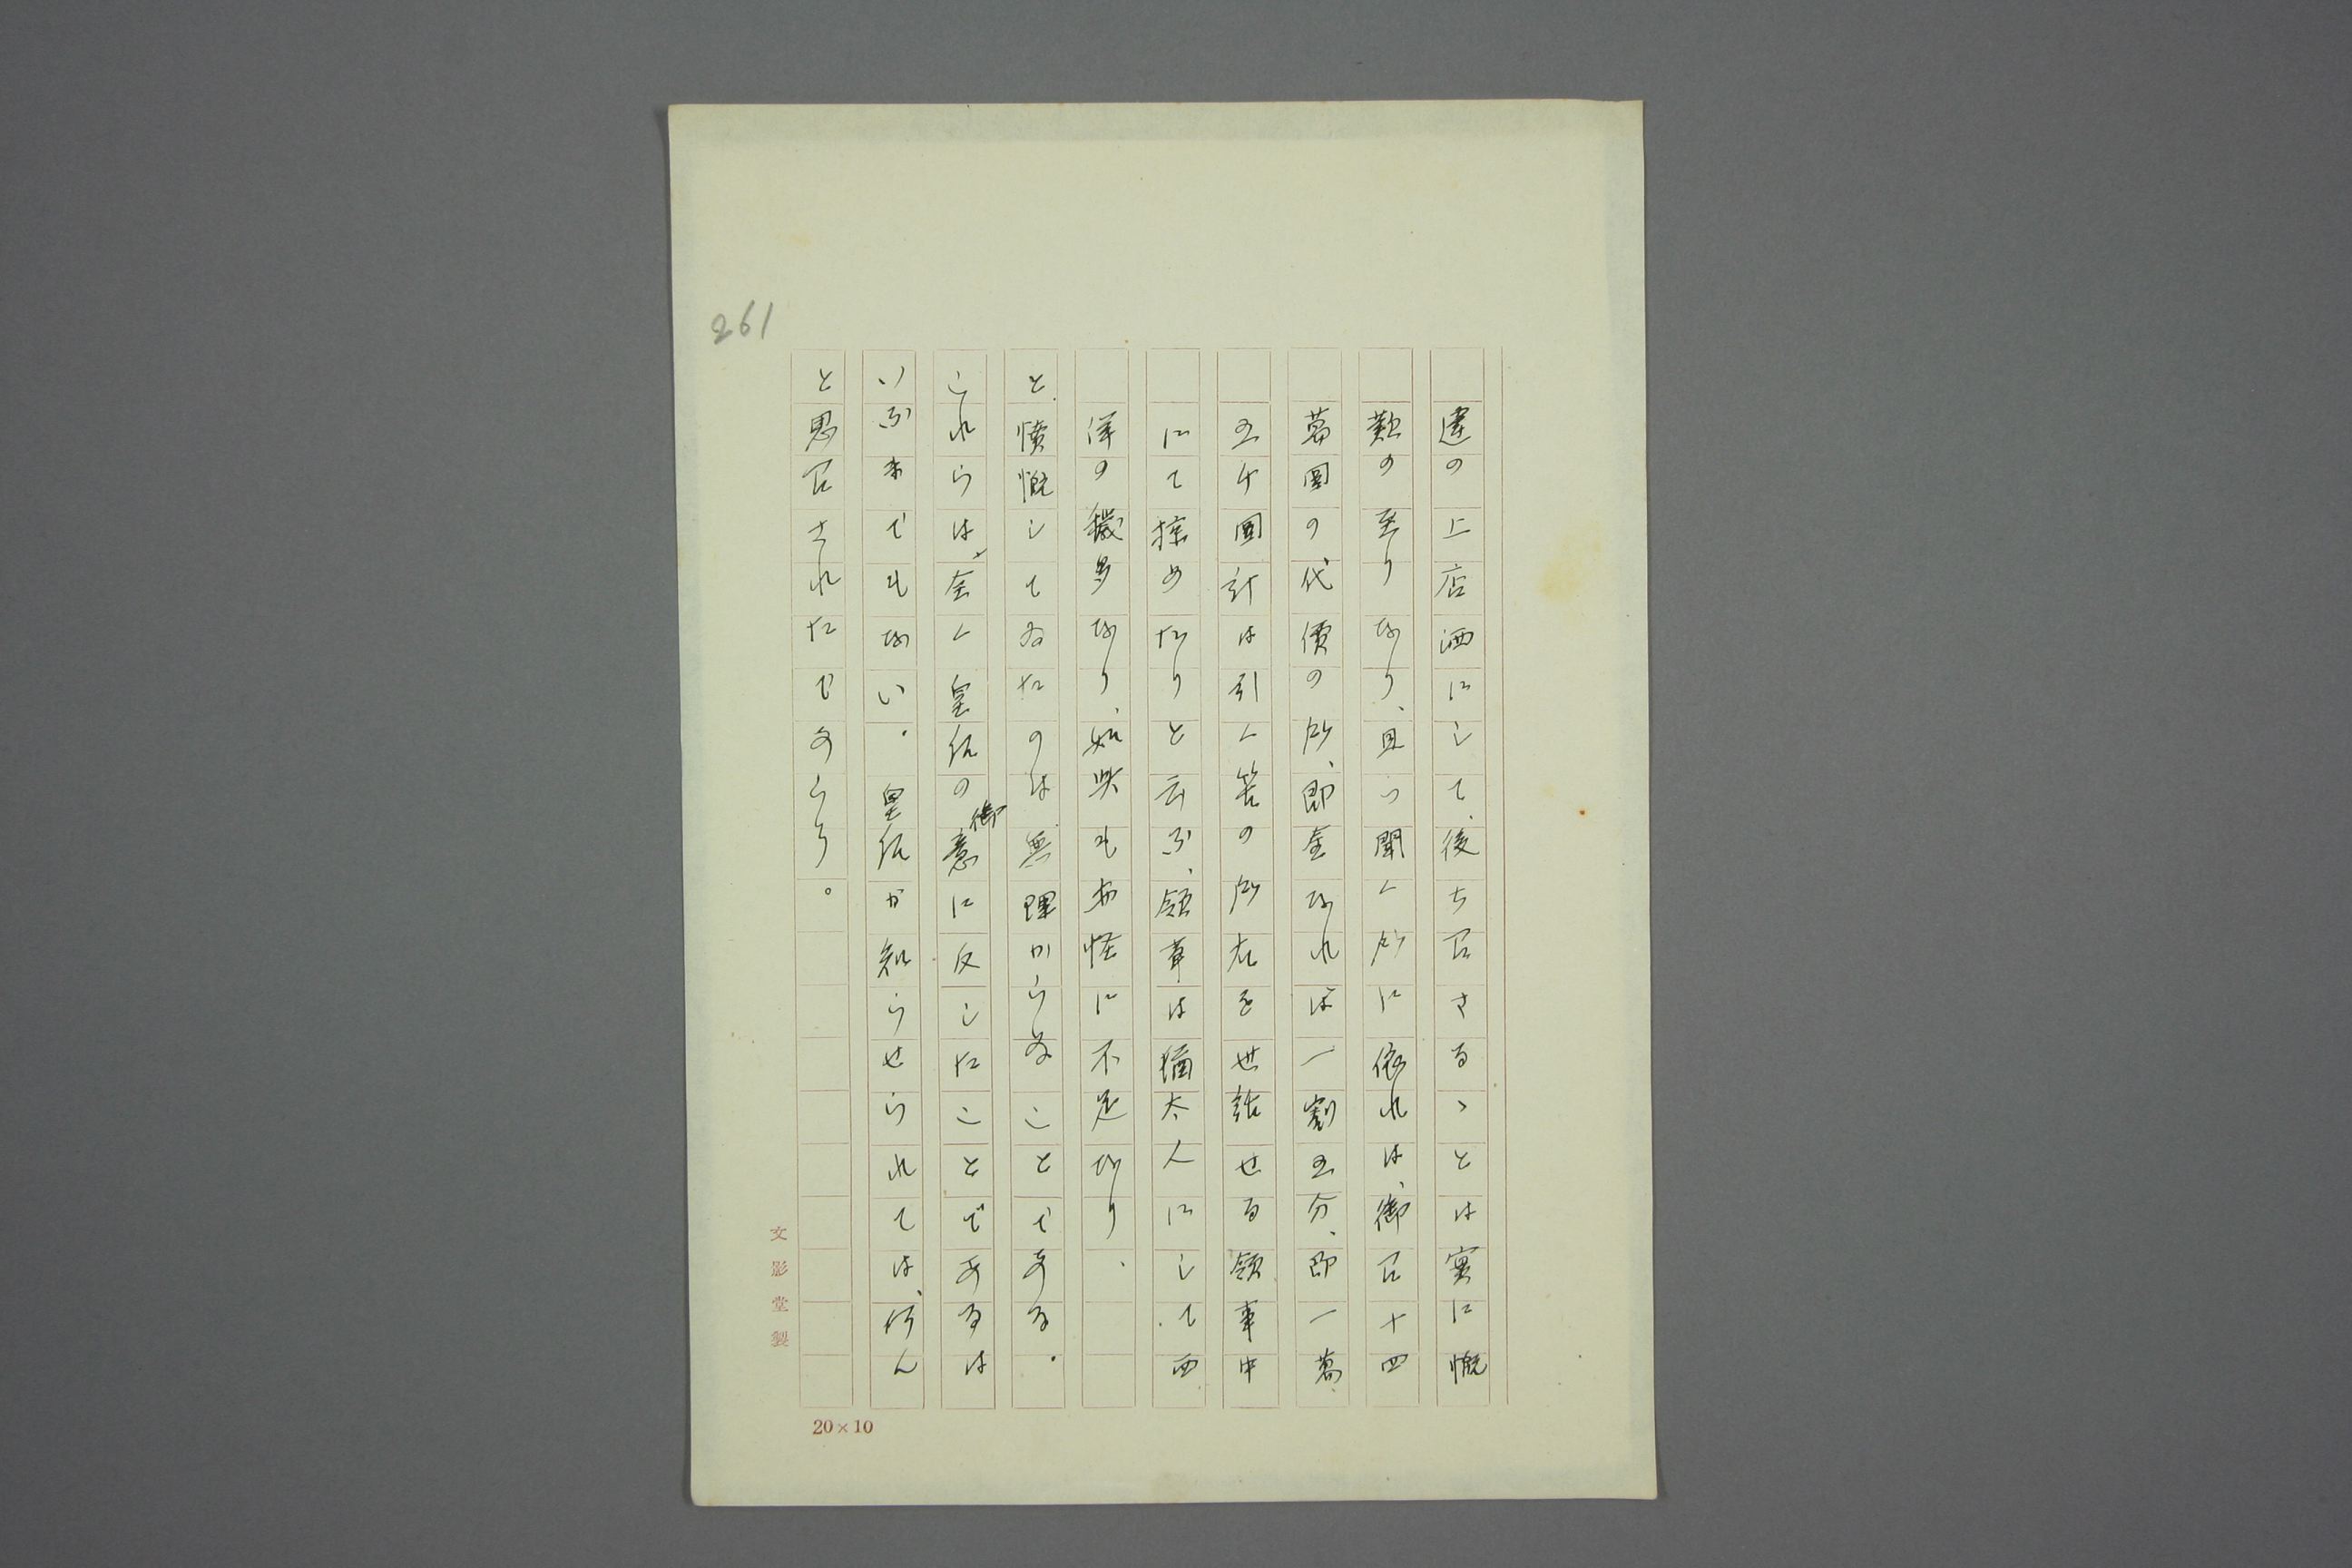 261
違の上店洒にして、後ち召さるゝとは実に慨
歎の至りなり、且つ聞く所に依れば、御召十四
萬圓の代價の所、即金なれば一割五分、即一萬
五千圓計は引く筈の所右を世話せる領事中
にて掠めたりと云ふ、領事は猶太人にして西
洋の穢多なり、如此も亦怪に不足なり、
と憤慨してゐたのは無理からぬことである。
これらは、全く皇后の御意に反したことであるは
いふまでもない。皇后が知らせられては、何ん
と思召されたであらう。
文影堂製
20×10